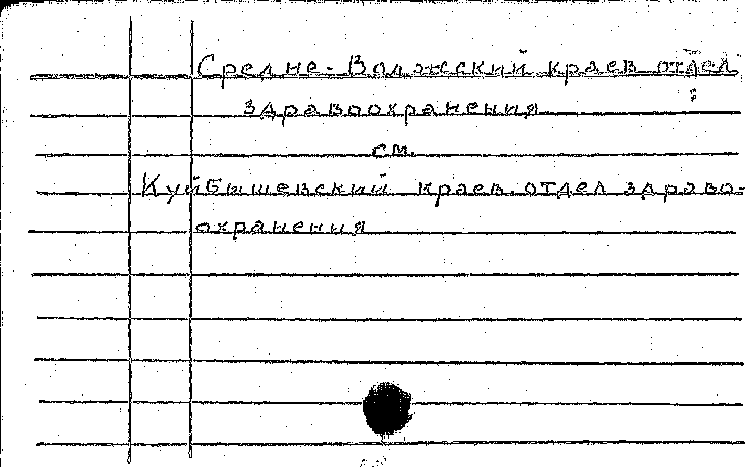 Средне-Волжский краев. отдел
здравоохранения
см.
Куйбышевский краев. отдел здраво-
охранения